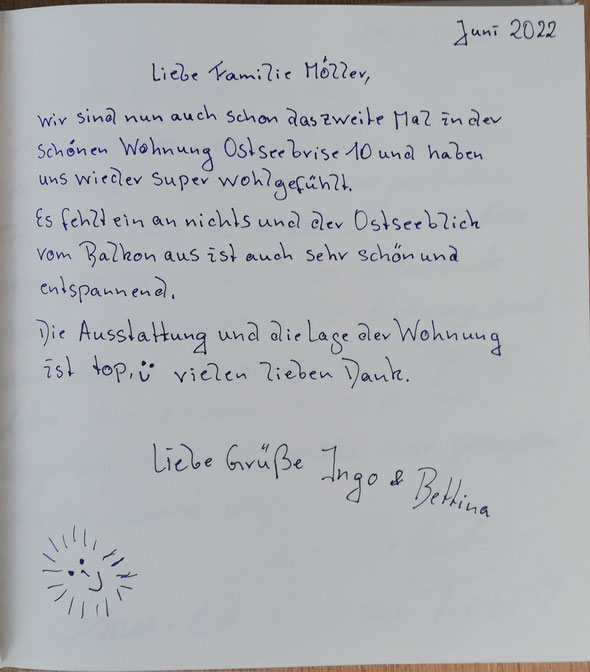 Juni 2022
Liebe Familie Möller,
wir sind nun auch schon das zweite Mal in der
schönen Wohnung Ostseebrise 10 und haben
uns wieder super wohlgefühlt.
Es fehlt ein an nichts und der Ostseeblick
vom Balkon aus ist auch sehr schön und
entspannend.
Die Ausstattung und die Lage der Wohnung
ist top. vielen lieben Dank.
Liebe Grüße Ingo & Bettina